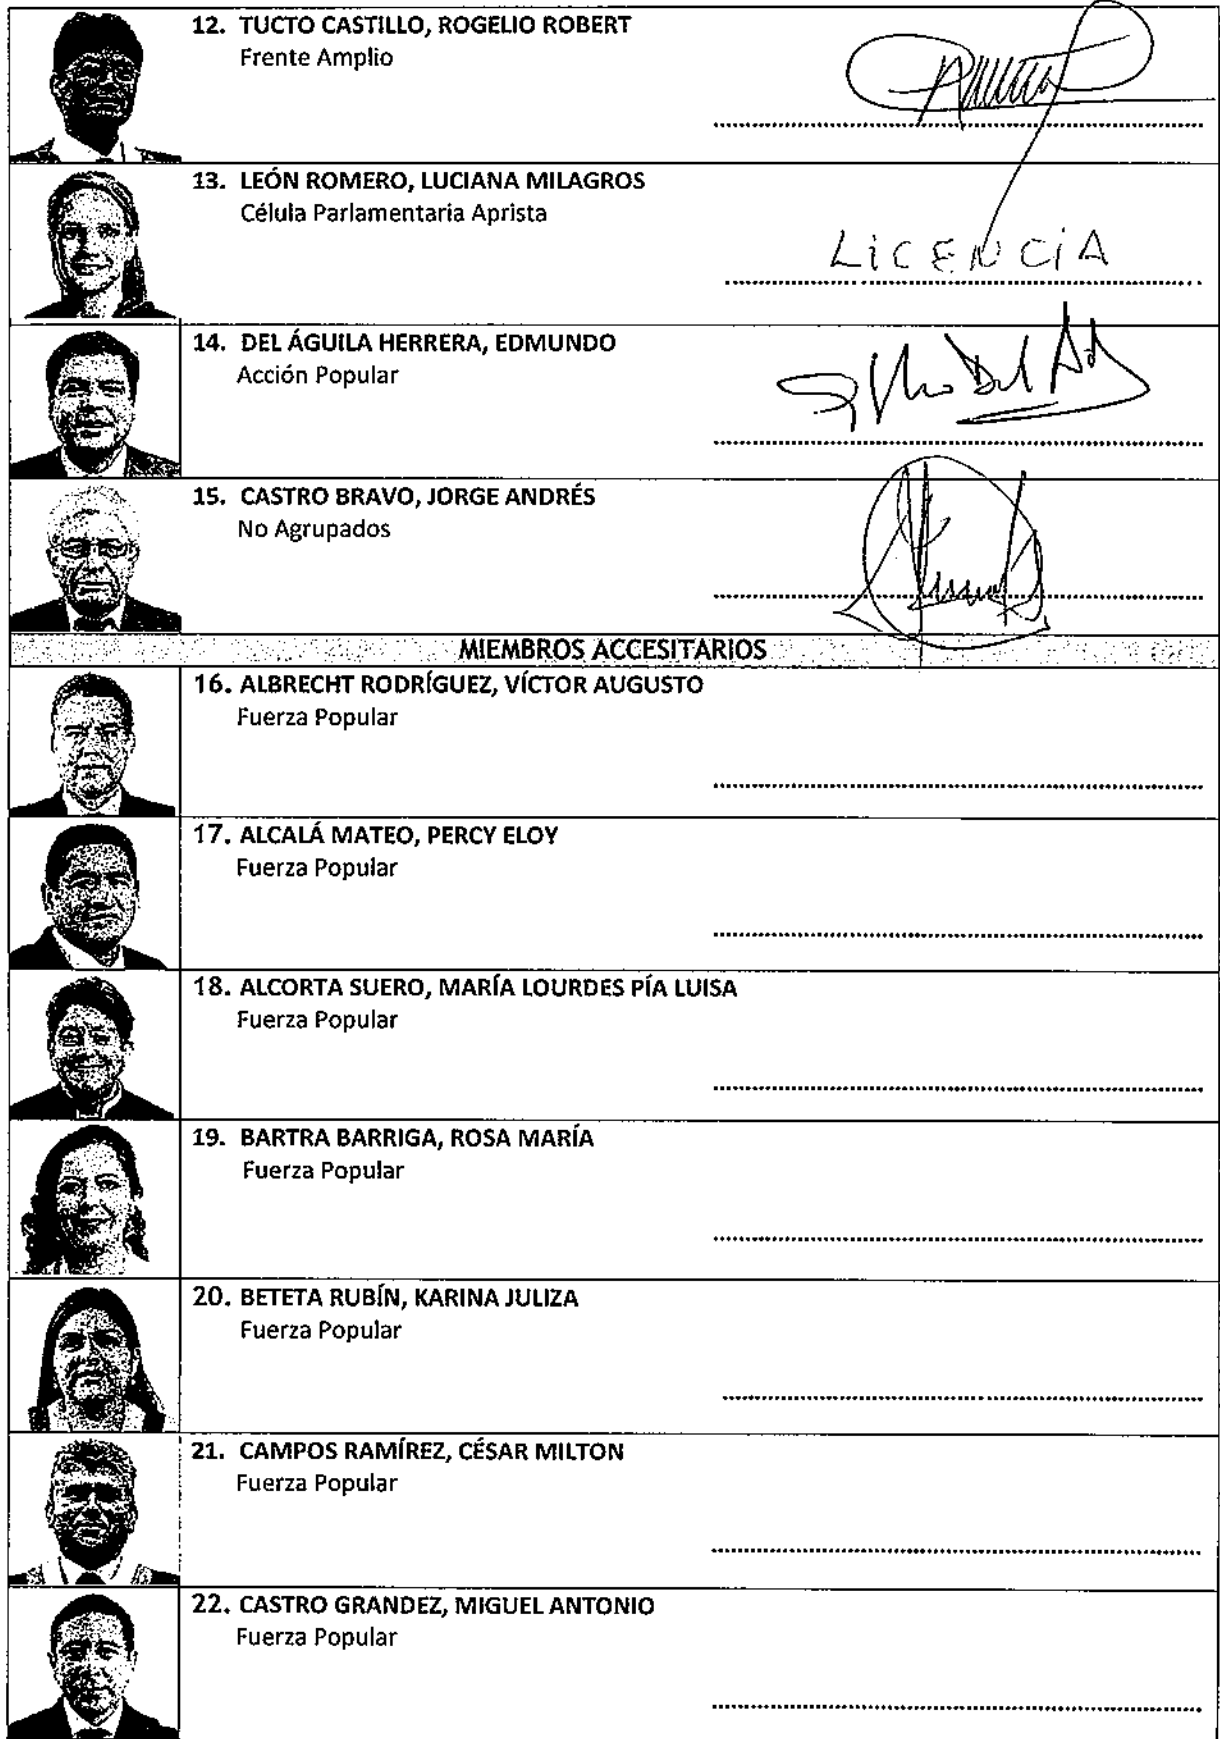 12. TUCTO CASTILLO, ROGELIO ROBERT
Frente Amplio
13. LEÓN ROMERO, LUCIANA MILAGROS
Célula Parlamentaria Aprista
LICENCIA
14. DEL ÁGUILA HERRERA, EDMUNDO
Acción Popular
15. CASTRO BRAVO, JORGE ANDRÉS
No Agrupados
MIEMBROS ACCESITARIOS
16. ALBRECHT RODRÍGUEZ, VÍCTOR AUGUSTO
Fuerza Popular
17. ALCALÁ MATEO, PERCY ELOY
Fuerza Popular
18. ALCORTA SUERO, MARÍA LOURDES PÍA LUISA
Fuerza Popular
19. BARTRA BARRIGA, ROSA MARÍA
Fuerza Popular
20. BETETA RUBÍN, KARINA JULIZA
Fuerza Popular
21. CAMPOS RAMÍREZ, CÉSAR MILTON
Fuerza Popular
22. CASTRO GRANDEZ, MIGUEL ANTONIO
Fuerza Popular